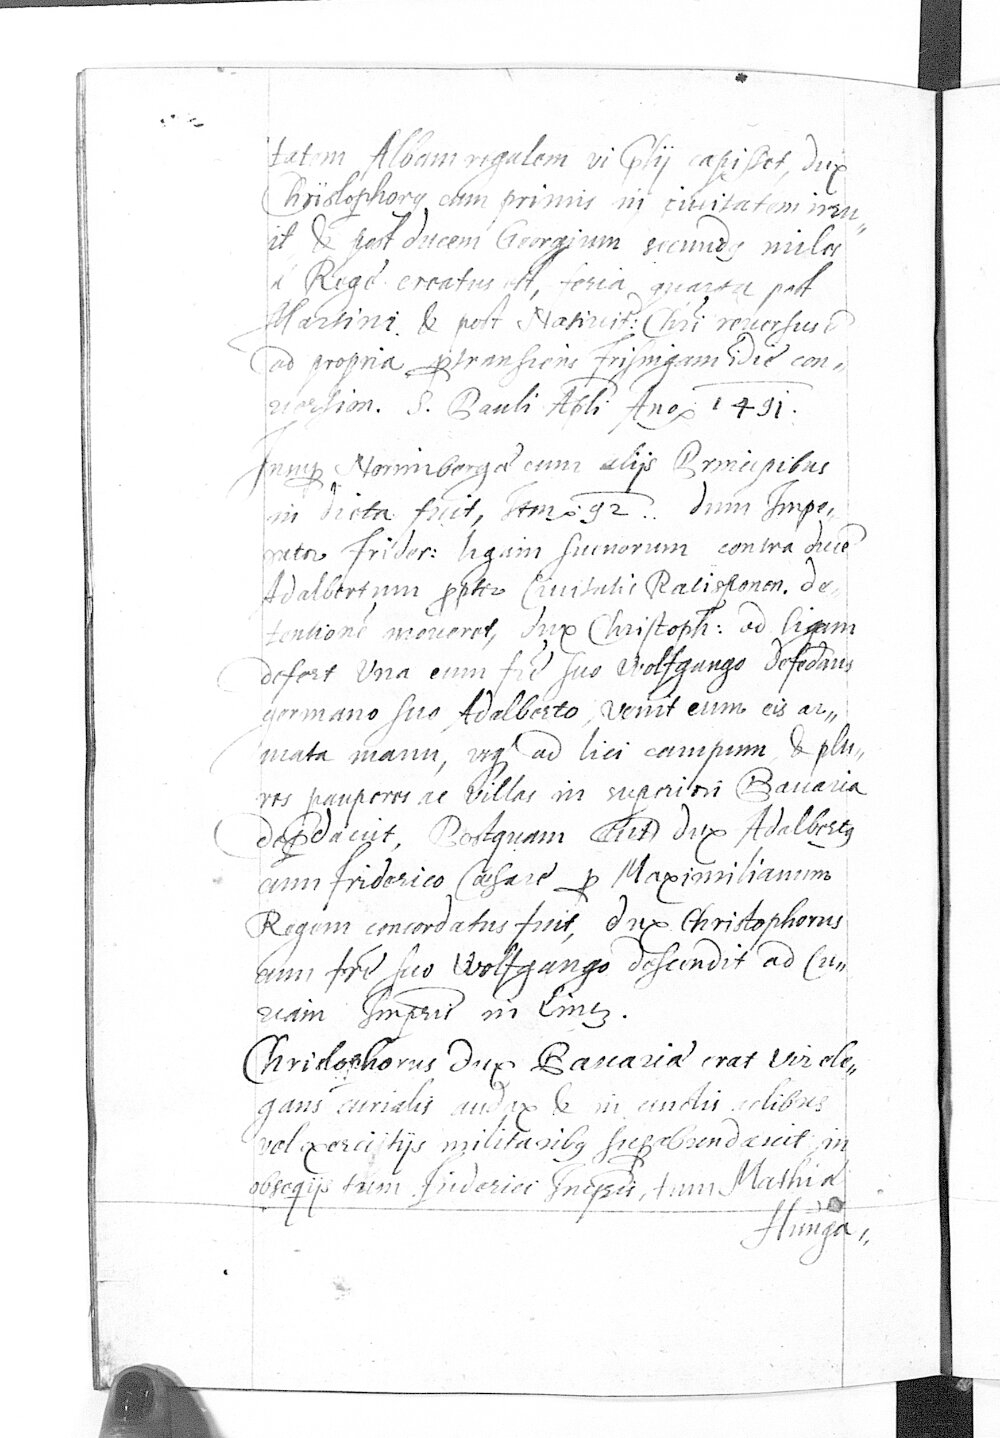 tatem Albam regalem vi plij capisset, dux
Christophorq cum primis in ciuitatem irru„
it & post ducem Georgium secundq miles
a Rege creatus est, feria quarta post
Martini. & post Natiuit: Chri reuersus e
ad propria ptransiens Frisingam die con„
uersion. S. Pauli Apli Ano 1491.
Nurnberga cum alijs Principibus
in dieta fuit, 92. dum Impe„
rator frider: ligam Sueuorum contra duce
Adalbertum ppter Ciuitatis Ratisponen. de„
tentione moueret, dux Christoph: ad ligam
defert Una cum fre suo Wolfgango
germano suo Adalberto, venit cum eis ar„
mata manu, usq ad lici campum, & plu„
res pauperes ac villas in superiori Bauaria
depdauit, Postquam dux Adalbertq
cum friderico Cæsare p Maximilianum
Regem concordatus fuit, dux Christophorus
cum fre suo Wolfgango descendit ad Cu„
riam Imperii in Lintz.
Christophorus Dux Bauariæ erat vir ele„
gans curialis audax & in cunctis actibus
vel exercitijs militaribq supabundauit, in
obsequijs tum friderici Imperii, tum Mathiæ
Hunga„